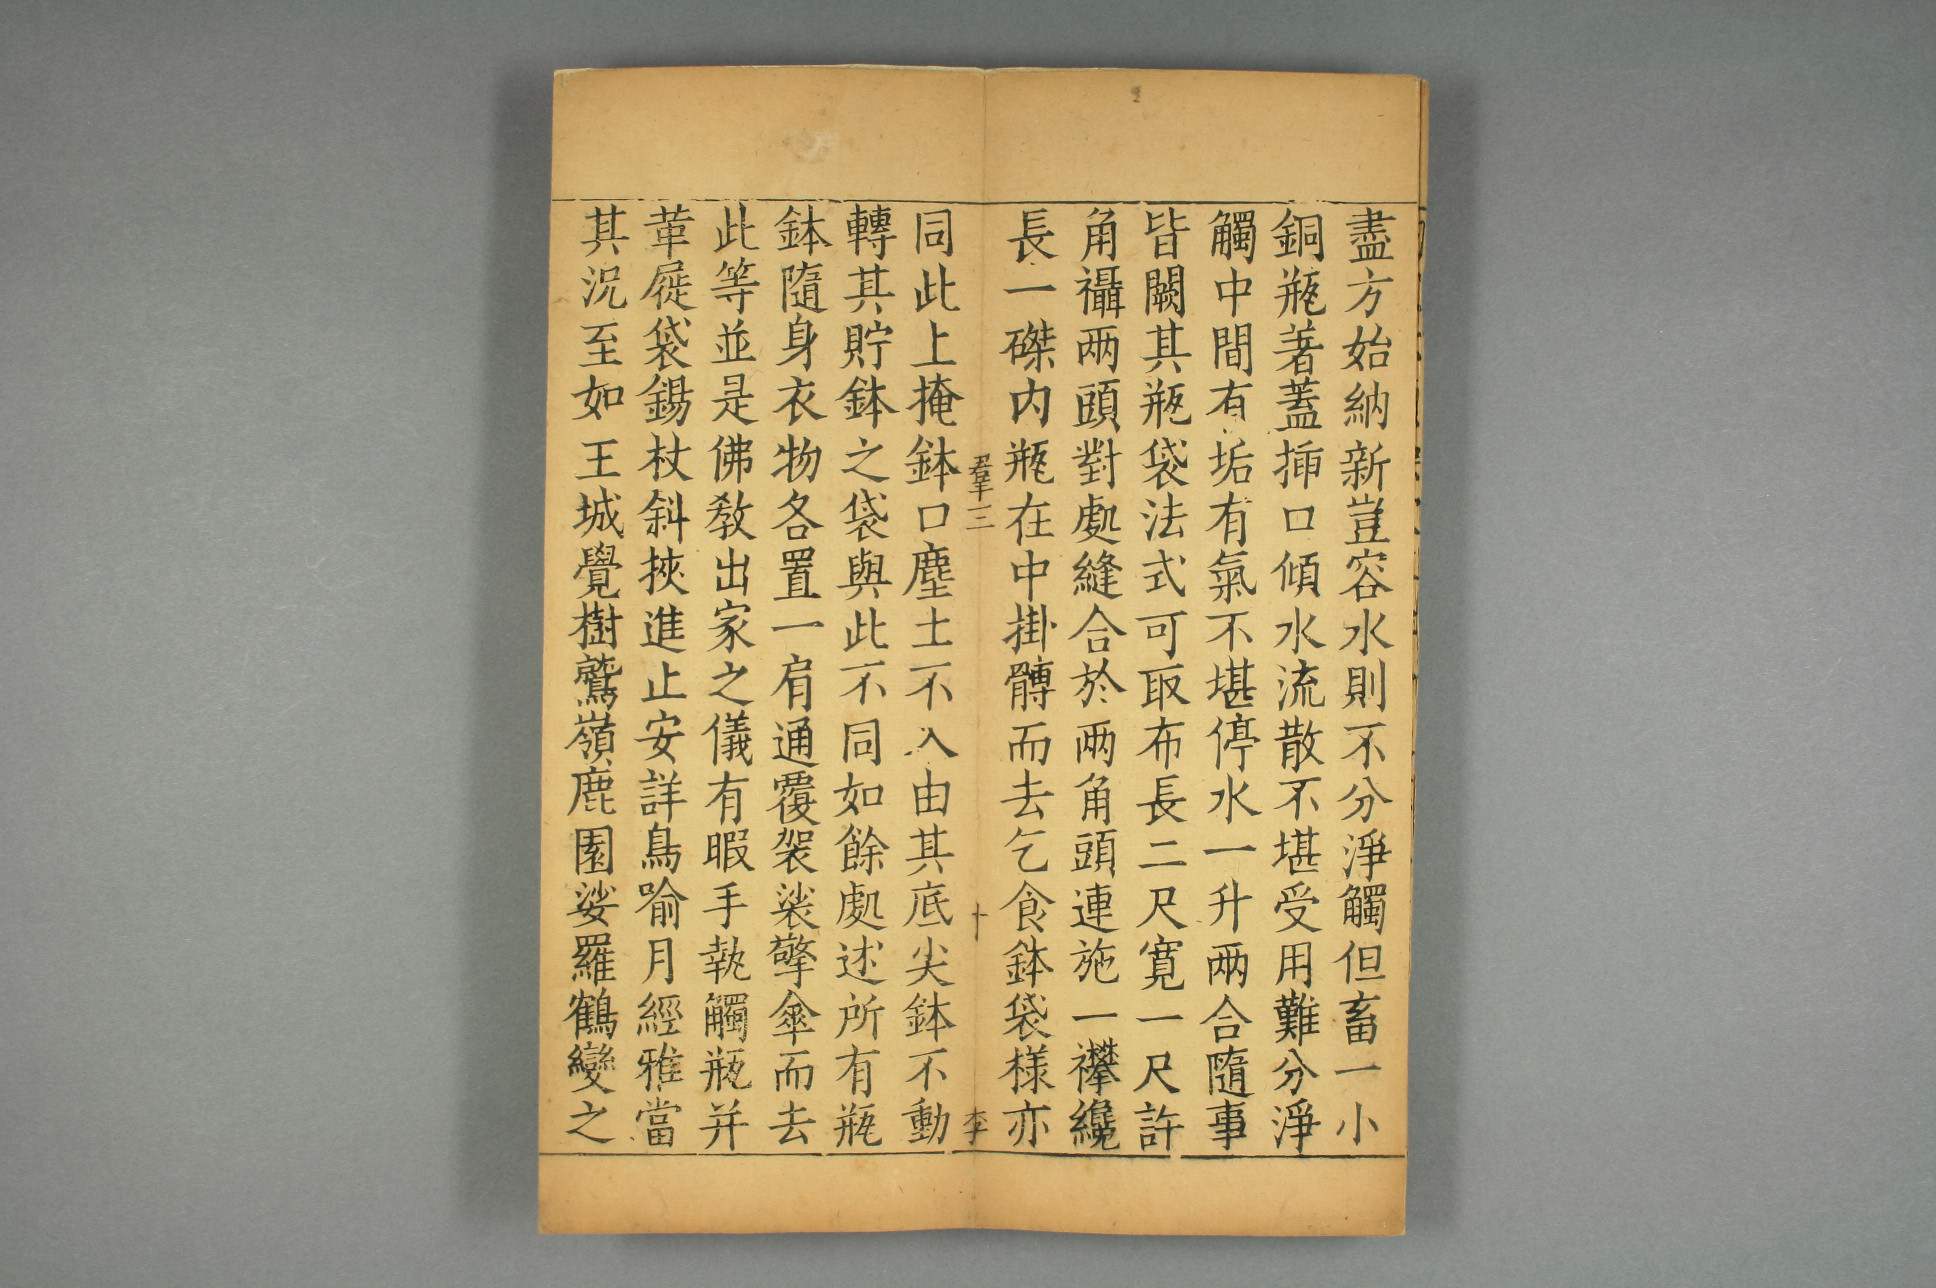 盡方始納新豈容水則不分淨觸但畜一小
銅瓶著蓋揷口傾水流散不堪受用難分淨
觸中間有垢有氣不堪停水一升兩合隨事
皆闕其瓶袋法式可取布長二尺寬一尺許
角襵兩頭對處縫合於兩角頭連施一襻纔
長一磔内瓶在中掛髆而去乞食鉢袋樣亦
羣三 十 李
同此上掩鉢口塵土不入由其底尖鉢不動
轉其貯鉢之袋與此不同如餘處述所有瓶
鉢隨身衣物各置一肩通覆袈裟擎傘而去
此等並是佛敎出家之儀有暇手執觸瓶并
革屣袋錫杖斜挾進止安詳鳥喻月經雅當
其況至如王城覺樹鷲嶺鹿園娑羅鶴變之